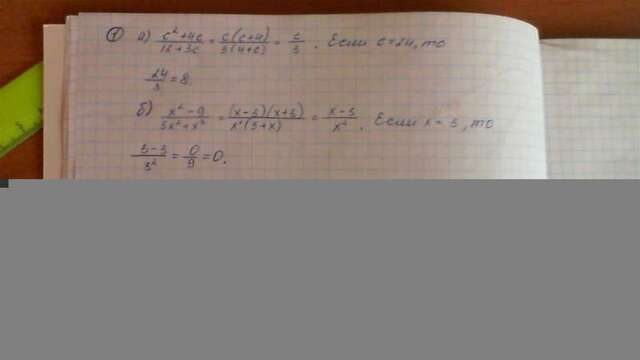 ① а) (c² + 4c)/(12 + 3c) = c(c+4)/3(4+c) = c/3. Если c = 24, то
24/3 = 8.
б) (x² - 9)/(3x² + x³) = (x-3)(x+3)/x²(3+x) = (x-3)/x². Если x = 3, то
(3-3)/3² = 0/9 = 0.